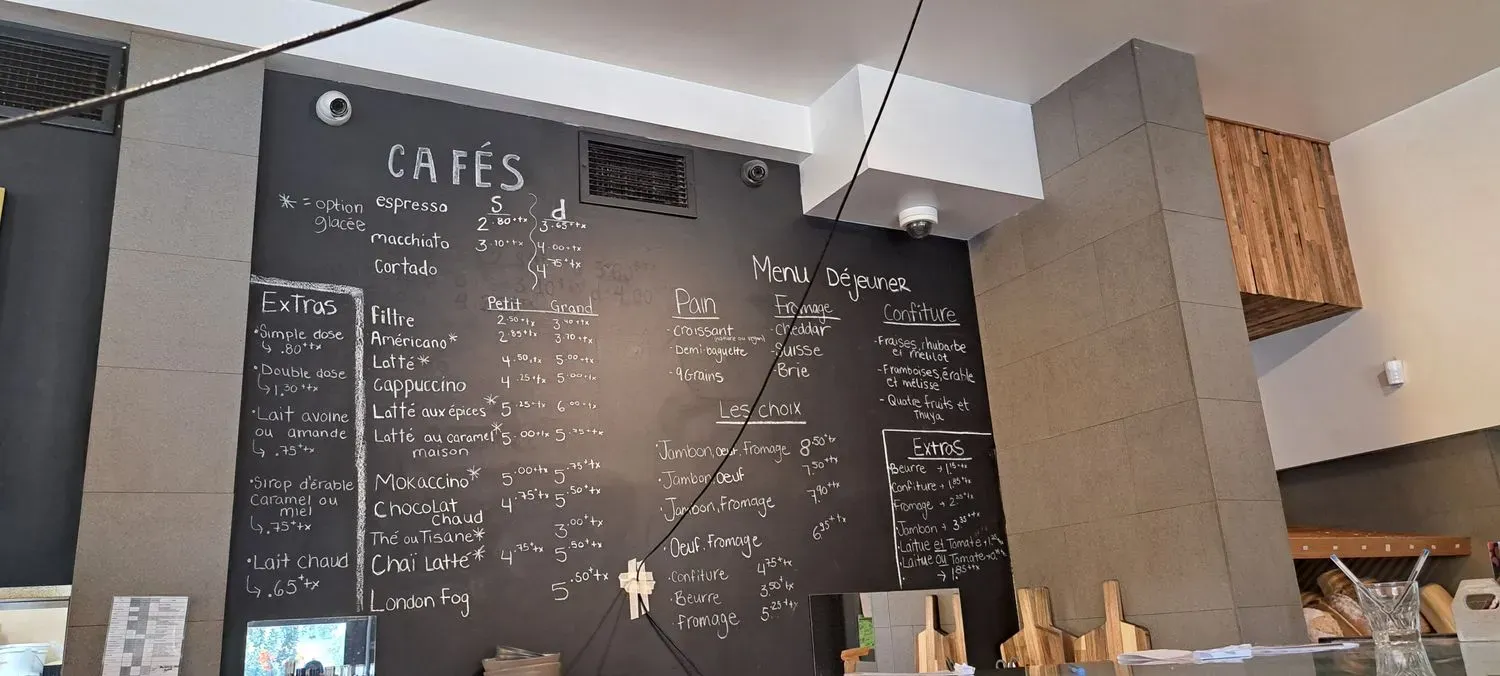 CAFÉS
* = option
glacée
S d
espresso 2.80+tx 3.65+tx
macchiato 3.10+tx 4.00+tx
Cortado 4.75+tx
Extras
•Simple dose
↳ .80+tx
•Double dose
↳ 1.30+tx
•Lait avoine
ou amande
↳ .75+tx
•Sirop d'érable
Caramel ou
miel
↳ .75+tx
•Lait chaud
↳ .65+tx
Petit Grand
Filtre 2.50+tx 3.40+tx
Américano* 2.85+tx 3.70+tx
Latté* 4.50+tx 5.00+tx
Cappuccino 4.25+tx 5.00+tx
Latté aux épices* 5.25+tx 6.00+tx
Latté au caramel* 5.00+tx 5.75+tx
maison
Mokaccino* 5.00+tx 5.75+tx
Chocolat 4.75+tx 5.50+tx
Chaud
Thé ou Tisane* 3.00+tx
Chaï Latté* 4.75+tx 5.50+tx
London Fog 5.50+tx
Menu Déjeuner
Pain
-Croissant
-Demi-baguette
-9 Grains
Fromage
-Cheddar
-Suisse
-Brie
Confiture
-Fraises, rhubarbe
et mélilot
-Framboises, érable
et mélisse
-Quatre fruits et
Thuya
Les choix
•Jambon, oeuf, fromage 8.50+tx
•Jambon, oeuf 7.50+tx
•Jambon, fromage 7.90+tx
•Oeuf, fromage 6.95+tx
•Confiture 4.75+tx
•Beurre 3.50+tx
•fromage 5.25+tx
Extras
Beurre → 1.15+tx
Confiture + 1.85+tx
Fromage +
Jambon +
•Laitue et Tomate
•Laitue ou Tomate
→ 1.85+tx